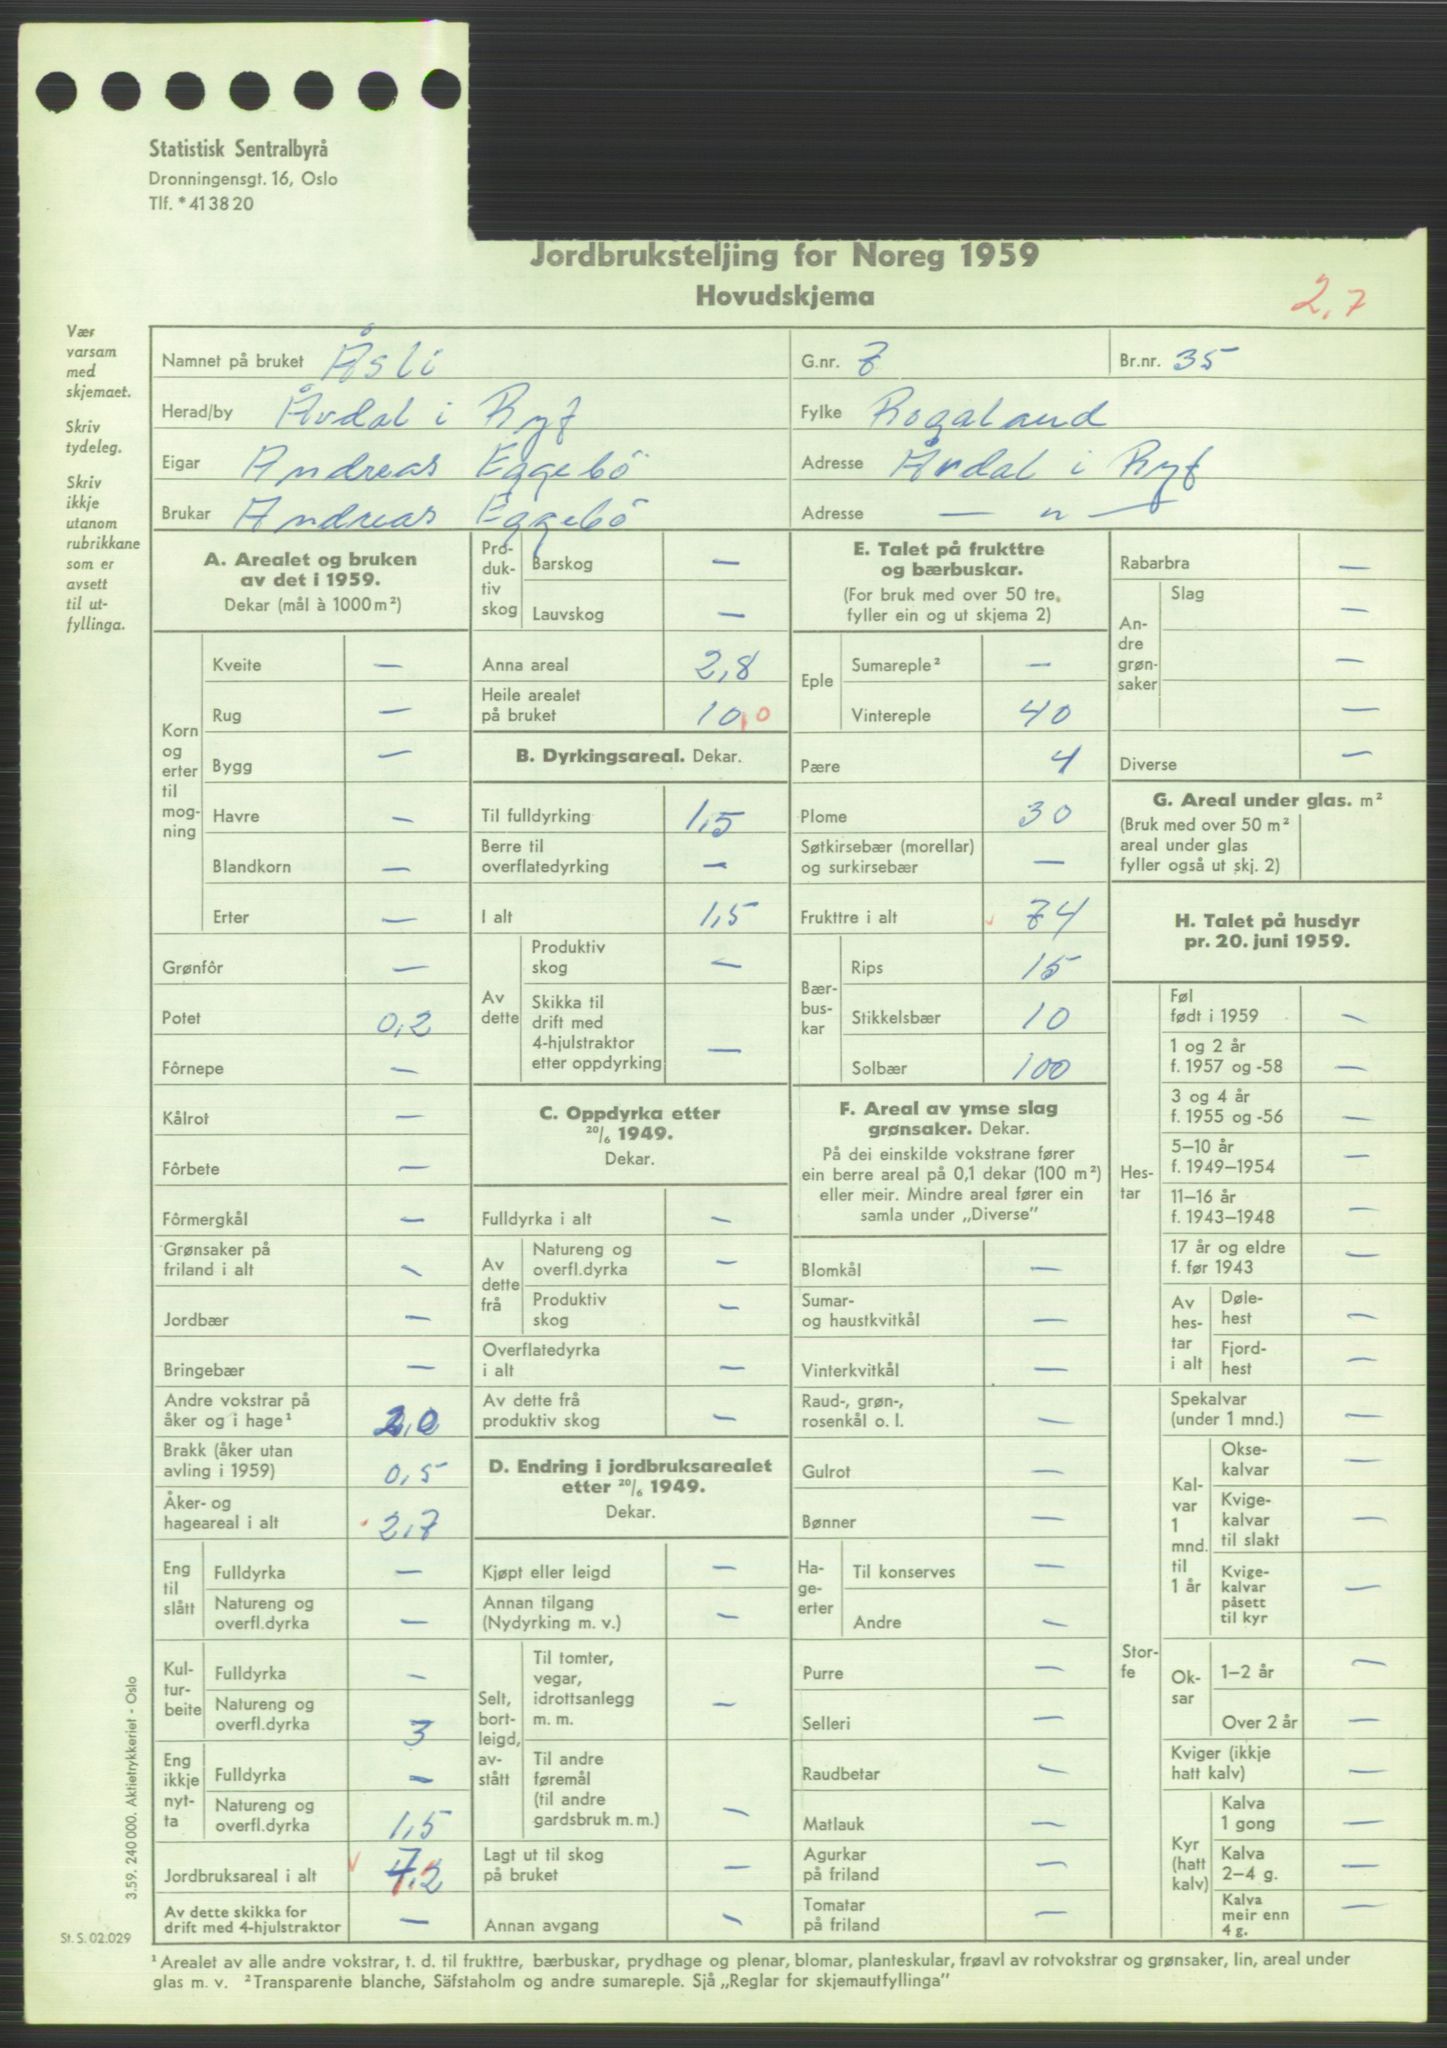 Statistisk Sentralbyrå
Dronningensgt. 16, Oslo
Tlf. * 41 38 20
Jordbruksteljing for Noreg 1959
Hovudskjema
2,7
Vær
varsam
med
skjemaet.
Skriv
tydeleg.
Skriv
ikkje
utanom
rubrikkane
som er
avsett
til ut-
fyllinga.
Namnet på bruket Åsli G.nr. 7 Br.nr. 35
Herad/by Årdal i Ryf Fylke Rogaland
Eigar Andreas Eggebö Adresse Årdal i Ryf
Brukar Andreas Eggebö Adresse — " —
A. Arealet og bruken
av det i 1959.
Dekar (mål à 1000 m²)
Korn
og
erter
til
mog-
ning
Kveite —
Rug —
Bygg —
Havre —
Blandkorn —
Erter —
Grønfôr —
Potet 0,2
Fôrnepe —
Kålrot —
Fôrbete —
Fôrmergkål —
Grønsaker på
friland i alt —
Jordbær —
Bringebær —
Andre vokstrar på
åker og i hage¹ 2,0
Brakk (åker utan
avling i 1959) 0,5
Åker- og
hageareal i alt 2,7
Eng
til
slått
Fulldyrka —
Natureng og
overfl.dyrka —
Kul-
tur-
beite
Fulldyrka —
Natureng og
overfl.dyrka 3
Eng
ikkje
nyt-
ta
Fulldyrka —
Natureng og
overfl.dyrka 1,5
Jordbruksareal i alt 7,2
Av dette skikka for
drift med 4-hjulstraktor —
Pro-
duk-
tiv
skog
Barskog —
Lauvskog —
Anna areal 2,8
Heile arealet
på bruket 10,0
B. Dyrkingsareal. Dekar.
Til fulldyrking 1,5
Berre til
overflatedyrking —
I alt 1,5
Av
dette
Produktiv
skog —
Skikka til
drift med
4-hjulstraktor
etter oppdyrking —
C. Oppdyrka etter
20/6 1949.
Dekar.
Fulldyrka i alt —
Av
dette
frå
Natureng og
overfl.dyrka —
Produktiv
skog —
Overflatedyrka
i alt —
Av dette frå
produktiv skog —
D. Endring i jordbruksarealet
etter 20/6 1949.
Dekar.
Kjøpt eller leigd —
Annan tilgang
(Nydyrking m. v.) —
Selt,
bort-
leigd,
av-
stått
Til tomter,
vegar,
idrottsanlegg
m. m. —
Til andre
føremål
(til andre
gardsbruk m. m.) —
Lagt ut til skog
på bruket —
Annan avgang —
E. Talet på frukttre
og bærbuskar.
(For bruk med over 50 tre,
fyller ein og ut skjema 2)
Eple
Sumareple² —
Vintereple 40
Pære 4
Plome 30
Søtkirsebær (morellar)
og surkirsebær —
Frukttre i alt 74
Bær-
bus-
kar
Rips 15
Stikkelsbær 10
Solbær 100
F. Areal av ymse slag
grønsaker. Dekar.
På dei einskilde vokstrane fører
ein berre areal på 0,1 dekar (100 m²)
eller meir. Mindre areal fører ein
samla under „Diverse”
Blomkål —
Sumar-
og haustkvitkål —
Vinterkvitkål —
Raud-, grøn-,
rosenkål o. l. —
Gulrot —
Bønner —
Ha-
ge-
erter
Til konserves —
Andre —
Purre —
Selleri —
Raudbetar —
Matlauk —
Agurkar
på friland —
Tomatar
på friland —
Rabarbra —
An-
dre
grøn-
saker
Slag
—
—
—
Diverse —
G. Areal under glas. m²
(Bruk med over 50 m²
areal under glas
fyller også ut skj. 2)
H. Talet på husdyr
pr. 20. juni 1959.
Hes-
tar
Føl
født i 1959 —
1 og 2 år
f. 1957 og -58 —
3 og 4 år
f. 1955 og -56 —
5–10 år
f. 1949–1954 —
11–16 år
f. 1943–1948 —
17 år og eldre
f. før 1943 —
Av
hes-
tar
i alt
Døle-
hest —
Fjord-
hest —
Stor-
fe
Spekalvar
(under 1 mnd.) —
Kal-
var
1
mnd.
til
1 år
Okse-
kalvar —
Kvige-
kalvar
til slakt —
Kvige-
kalvar
påsett
til kyr —
Ok-
sar
1–2 år —
Over 2 år —
Kviger (ikkje
hatt kalv) —
Kyr
(hatt
kalv)
Kalva
1 gong —
Kalva
2–4 g. —
Kalva
meir enn
4 g. —
3.59. 240 000. Aktietrykkeriet - Oslo
St. S. 02.029
¹ Arealet av alle andre vokstrar, t. d. til frukttre, bærbuskar, prydhage og plenar, blomar, planteskular, frøavl av rotvokstrar og grønsaker, lin, areal under
glas m. v. ² Transparente blanche, Säfstaholm og andre sumareple. Sjå „Reglar for skjemautfyllinga”